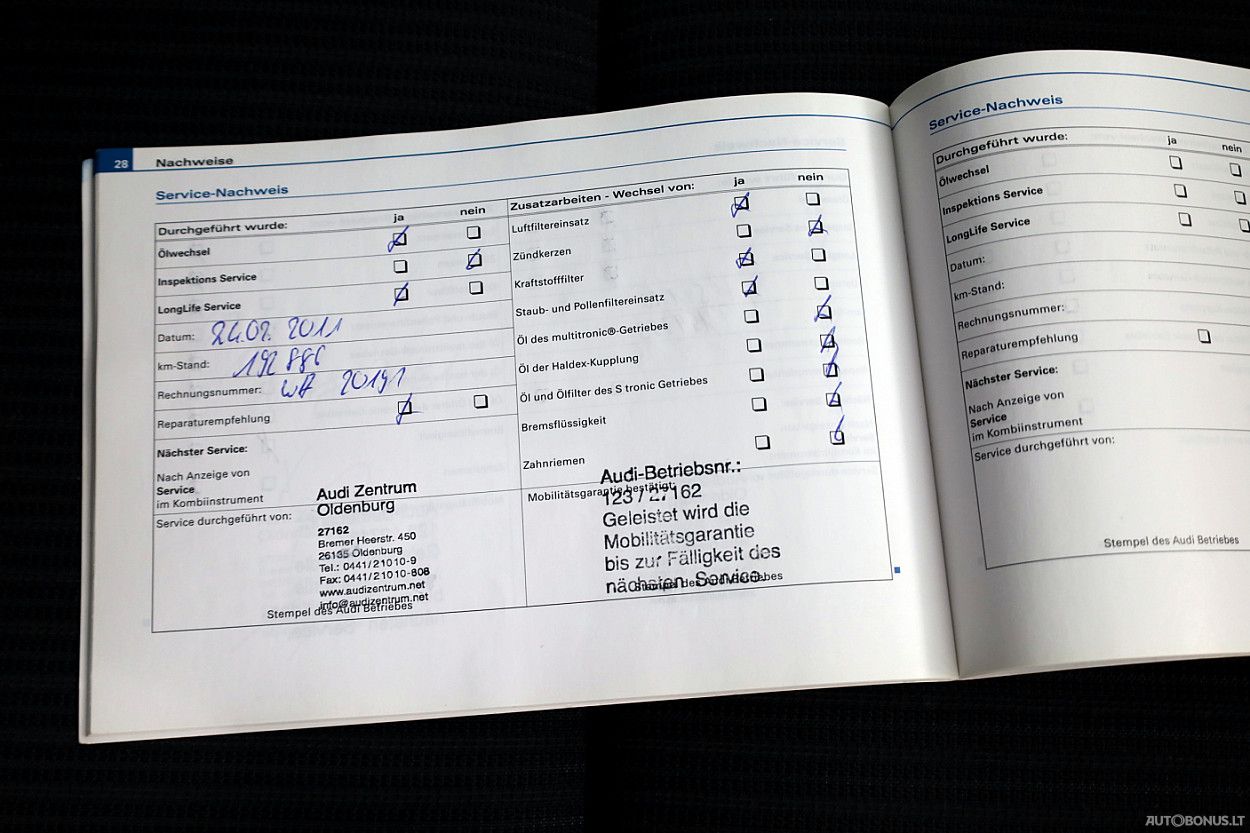 28 Nachweise
Service-Nachweis
Durchgeführt wurde: ja nein
Ölwechsel
Inspektions Service
LongLife Service
Datum: 24.02. 2011
km-Stand: 192 886
Rechnungsnummer: 20191
Reparaturempfehlung
Nächster Service:
Nach Anzeige von
Service
im Kombiinstrument
Service durchgeführt von:
Audi Zentrum
Oldenburg
27162
Bremer Heerstr. 450
26135 Oldenburg
Tel.: 0441/21010-9
Fax: 0441/21010-808
www.audizentrum.net
info@audizentrum.net
Stempel des Audi Betriebes
Zusatzarbeiten - Wechsel von: ja nein
Luftfiltereinsatz
Zündkerzen
Kraftstofffilter
Staub- und Pollenfiltereinsatz
Öl des multitronic®-Getriebes
Öl der Haldex-Kupplung
Öl und Ölfilter des S tronic Getriebes
Bremsflüssigkeit
Zahnriemen
Mobilitätsgarantie bestätigt:
Audi-Betriebsnr.:
123 / 27162
Geleistet wird die
Mobilitätsgarantie
bis zur Fälligkeit des
nächsten Service.
Stempel des Audi Betriebes
Service-Nachweis
Durchgeführt wurde: ja nein
Ölwechsel
Inspektions Service
LongLife Service
Datum:
km-Stand:
Rechnungsnummer:
Reparaturempfehlung
Nächster Service:
Nach Anzeige von
Service
im Kombiinstrument
Service durchgeführt von:
Stempel des Audi Betriebes
AUTOBONUS.LT